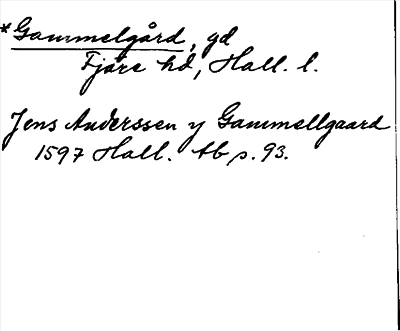 *Gammelgård, gd
Fjäre hd, Hall. l.
Jens Anderssen y Gammellgaard
1597 Hall. Ab p. 93.